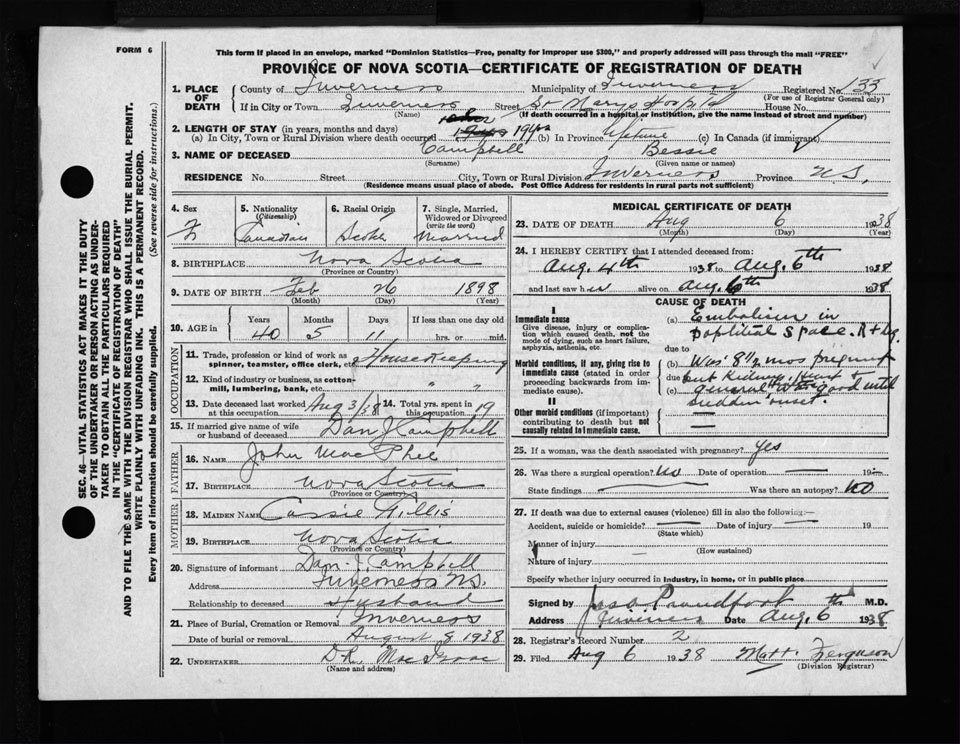 FORM 6
This form if placed in an envelope, marked "Dominion Statistics—Free, penalty for improper use $300," and properly addressed will pass through the mail "FREE"
PROVINCE OF NOVA SCOTIA—CERTIFICATE OF REGISTRATION OF DEATH
SEC. 46—VITAL STATISTICS ACT MAKES IT THE DUTY
OF THE UNDERTAKER OR PERSON ACTING AS UNDER-
TAKER TO OBTAIN ALL THE PARTICULARS REQUIRED
IN THE "CERTIFICATE OF REGISTRATION OF DEATH"
AND TO FILE THE SAME WITH THE DIVISION REGISTRAR WHO SHALL ISSUE THE BURIAL PERMIT.
WRITE PLAINLY WITH UNFADING INK. THIS IS A PERMANENT RECORD.
Every item of information should be carefully supplied. (See reverse side for instructions.)
1. PLACE OF DEATH
County of Inverness Municipality of Inverness Registered No. 133
(For use of Registrar General only)
If in City or Town Inverness Street St Marys Hospital House No.
(Name) (If death occurred in a hospital or institution, give the name instead of street and number)
2. LENGTH OF STAY (in years, months and days)
(a) In City, Town or Rural Division where death occurred 19 yrs (b) In Province lifetime (c) In Canada (if immigrant)
3. NAME OF DECEASED Campbell Bessie
(Surname) (Given name or names)
RESIDENCE No. Street City, Town or Rural Division Inverness Province N.S.
(Residence means usual place of abode. Post Office Address for residents in rural parts not sufficient)
4. Sex F
5. Nationality (Citizenship) Canadian
6. Racial Origin Scotch
7. Single, Married, Widowed or Divorced (write the word) Married
8. BIRTHPLACE Nova Scotia
(Province or Country)
9. DATE OF BIRTH Feb 26 1898
(Month) (Day) (Year)
10. AGE in Years Months Days If less than one day old
40 5 11 hrs. or min.
OCCUPATION
11. Trade, profession or kind of work as spinner, teamster, office clerk, etc. Housekeeping
12. Kind of industry or business, as cotton-mill, lumbering, bank, etc. " "
13. Date deceased last worked at this occupation Aug 3/38 14. Total yrs. spent in this occupation 19
15. If married give name of wife or husband of deceased Dan J Campbell
FATHER
16. NAME John MacPhee
17. BIRTHPLACE Nova Scotia
(Province or Country)
MOTHER
18. MAIDEN NAME Cassie Gillis
19. BIRTHPLACE Nova Scotia
(Province or Country)
20. Signature of informant Dan. J. Campbell
Address Inverness NS.
Relationship to deceased Husband
21. Place of Burial, Cremation or Removal Inverness
Date of burial or removal August 8 1938
22. UNDERTAKER D.R. MacIsaac
(Name and address)
MEDICAL CERTIFICATE OF DEATH
23. DATE OF DEATH Aug 6 1938
(Month) (Day) (Year)
24. I HEREBY CERTIFY that I attended deceased from:
Aug. 4th 1938 to Aug. 6th 1938
and last saw her alive on Aug. 6th 1938
CAUSE OF DEATH
I
Immediate cause
Give disease, injury or complication which caused death, not the mode of dying, such as heart failure, asphyxia, asthenia, etc.
(a) Embolism in popliteal space. Rt Leg.
due to
Morbid conditions, if any, giving rise to immediate cause (stated in order proceeding backwards from immediate).
(b) Was 8 1/2 mos pregnant
due to but Kidneys, Heart &
(c) General good until
sudden onset.
II
Other morbid conditions (if important) contributing to death but not causally related to immediate cause.
25. If a woman, was the death associated with pregnancy? yes
26. Was there a surgical operation? No Date of operation — 19
State findings Was there an autopsy? No
27. If death was due to external causes (violence) fill in also the following:—
Accident, suicide or homicide? — Date of injury — 19
(State which)
Manner of injury
(How sustained)
Nature of injury
Specify whether injury occurred in industry, in home, or in public place
Signed by Proudfoot M.D.
Address Inverness Date Aug. 6th 1938
28. Registrar's Record Number 2
29. Filed Aug 6 1938 Matt. Ferguson
(Division Registrar)